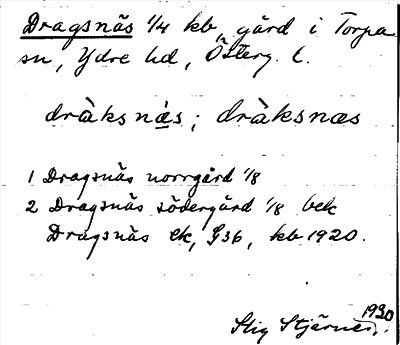 Dragsnäs 1/4 kb, gård i Torpa
sn, Ydre hd, Österg. l.
dràksnä̀s; dràksnæs
1 Dragsnäs norrgård 1/8
2 Dragsnäs södergård 1/8 bek
Dragsnäs ek, G36, kb 1920.
1930
Stig Stjärner.